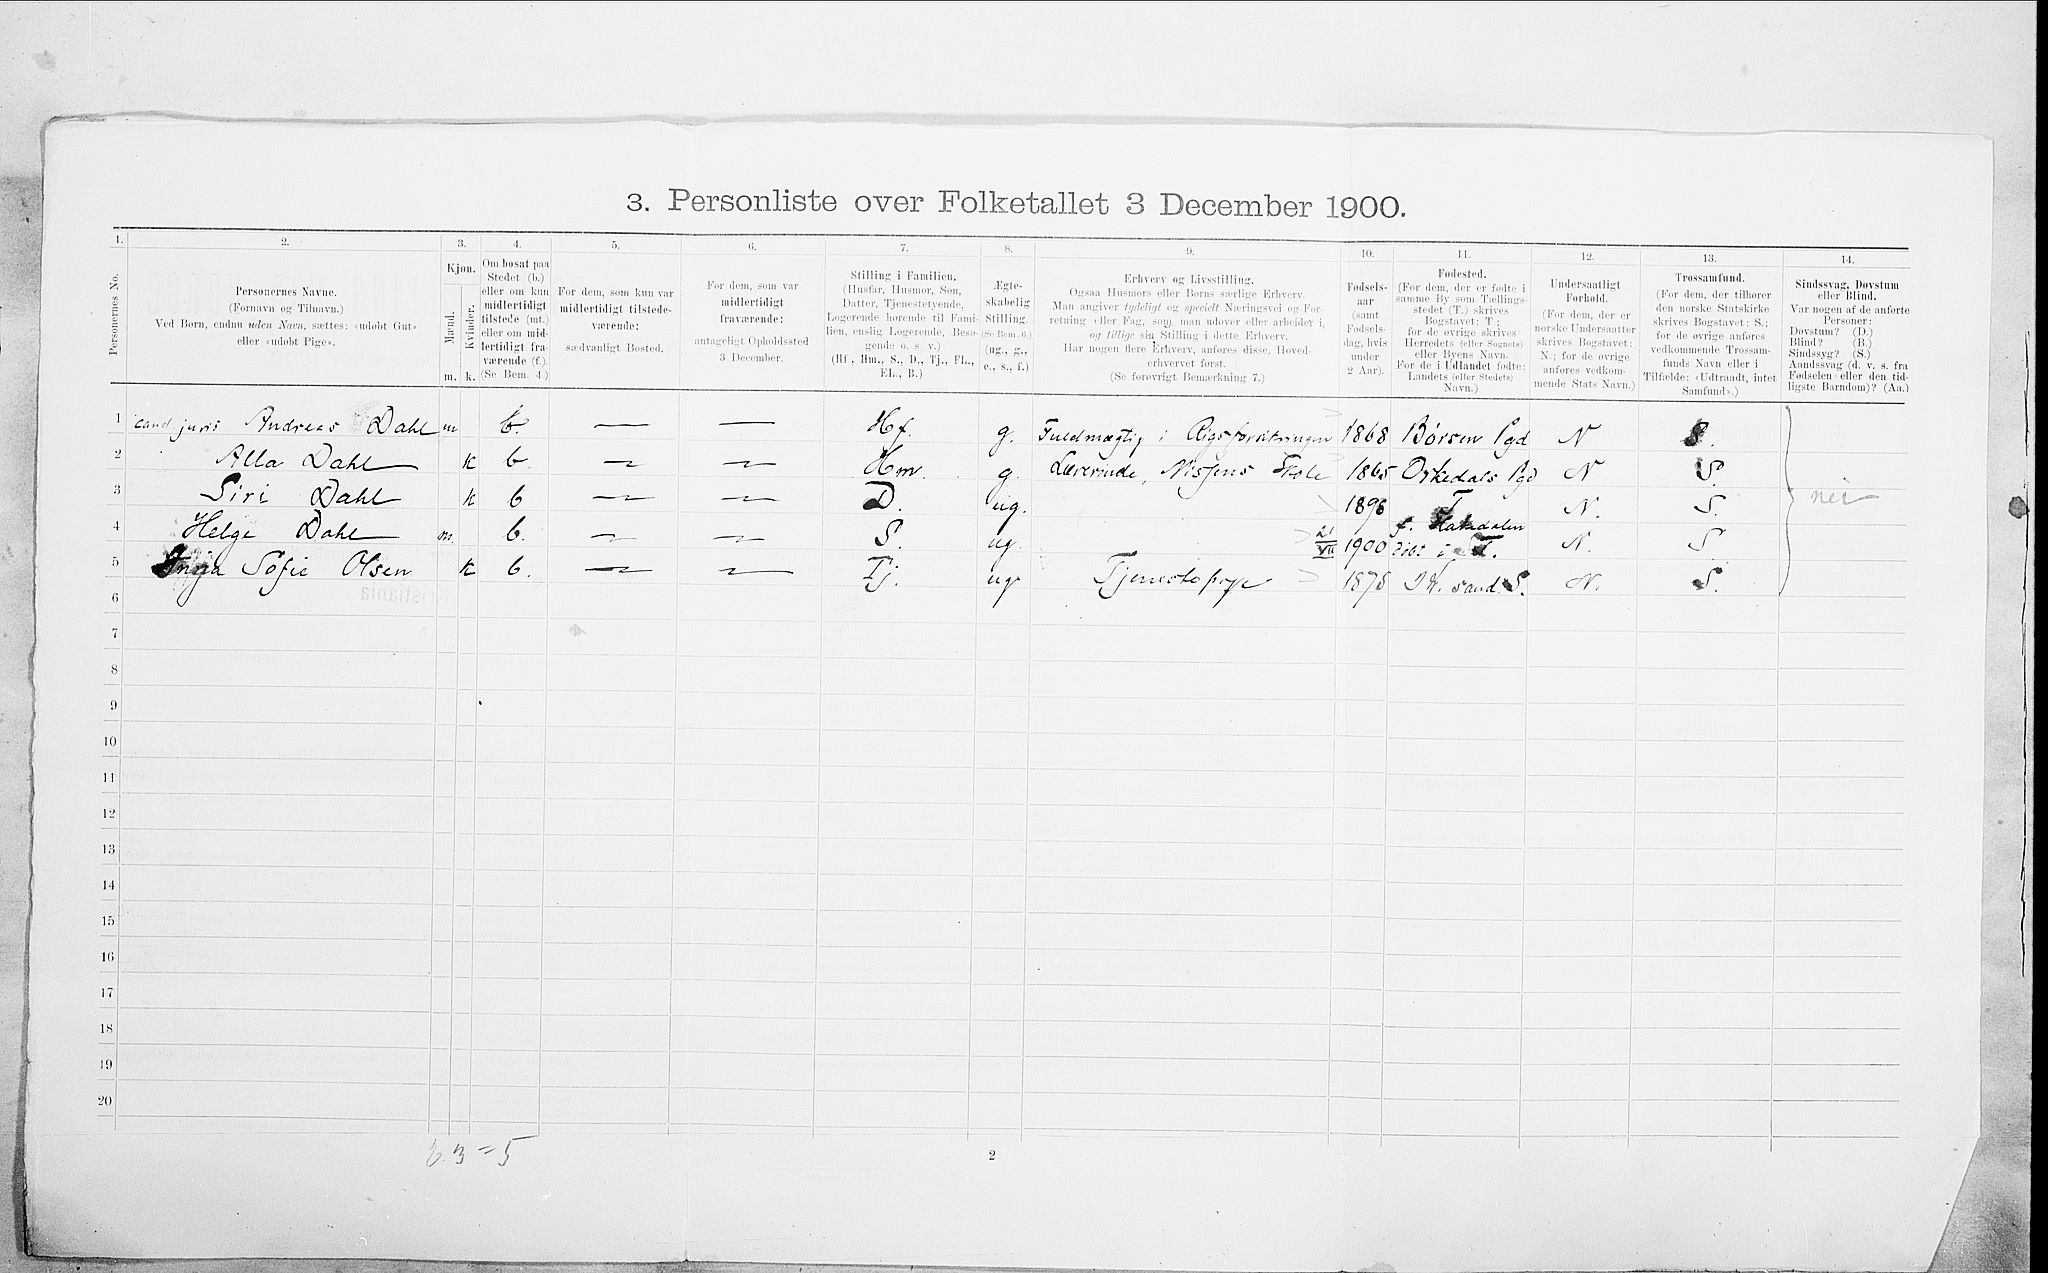 3. Personliste over Folketallet 3 December 1900.
1. 2. 3. 4. 5. 6. 7. 8. 9. 10. 11. 12. 13. 14.
Personernes No.
Personernes Navne.
(Fornavn og Tilnavn.)
Ved Børn, endnu uden Navn, sættes: «udøbt Gut»
eller «udøbt Pige».
Kjøn.
Mænd.
Kvinder.
m. k.
Om bosat paa
Stedet (b.)
eller om kun
midlertidigt
tilstede (mt.)
eller om mid-
lertidigt fra-
værende (f.).
(Se Bem. 4.)
For dem, som kun var
midlertidigt tilstede-
værende:
sædvanligt Bosted.
For dem, som var
midlertidigt
fraværende:
antageligt Opholdssted
3 December.
Stilling i Familien.
(Husfar, Husmor, Søn,
Datter, Tjenestetyende,
Logerende hørende til Fami-
lien, enslig Logerende, Besø-
gende o. s. v.)
(Hf., Hm., S., D., Tj., FL.,
EL., B.)
Ægte-
skabelig
Stilling.
(Se Bem. 6.)
(ug., g.,
e., s., f.)
Erhverv og Livsstilling.
Ogsaa Husmors eller Børns særlige Erhverv.
Man angiver tydeligt og specielt Næringsvei og For-
retning eller Fag, som man udøver eller arbeider i,
og tillige sin Stilling i dette Erhverv.
Har nogen flere Erhverv, anføres disse, Hoved-
erhvervet først.
(Se forøvrigt Bemærkning 7.)
Fødsels-
aar
(samt
Fødsels-
dag, hvis
under
2 Aar).
Fødested.
(For dem, der er fødte i
samme By som Tællings-
stedet (T.) skrives
Bogstavet: T;
for de øvrige skrives
Herredets (eller Sognets)
eller Byens Navn.
For de i Udlandet fødte:
Landets (eller Stedets)
Navn.)
Undersaatligt
Forhold.
(For dem, der er
norske Undersaatter
skrives Bogstavet:
N.; for de øvrige
anføres vedkom-
mende Stats Navn.)
Trossamfund.
(For dem, der tilhører
den norske Statskirke
skrives Bogstavet: S.;
for de øvrige anføres
vedkommende Trossam-
funds Navn eller i
Tilfælde: «Udtraadt, intet
Samfund».)
Sindssvag, Døvstum
eller Blind.
Var nogen af de anførte
Personer:
Døvstum? (D.)
Blind? (B.)
Sindssyg? (S.)
Aandssvag (d. v. s. fra
Fødselen eller den tid-
ligste Barndom)? (Aa.)
1 cand. juris Andreas Dahl m b. — — Hf. g. Fuldmægtig i Rigsforsikringen 1868 Børsen Pgd N S.
2 Alla Dahl k b. — — Hm. g. Lærerinde, Nissens Skole 1865 Orkedals Pgd N S.
3 Siri Dahl k b — — D. ug. 1896 T N. S. nei
4 Helge Dahl m. b. — — S. ug. 21/VII 1900 T. N. S
5 Sofie Olsen k b. — — Tj. ug. Tjenestepige 1875 N. S.
6
7
8
9
10
11
12
13
14
15
16
17
18
19
20
3 = 5
2